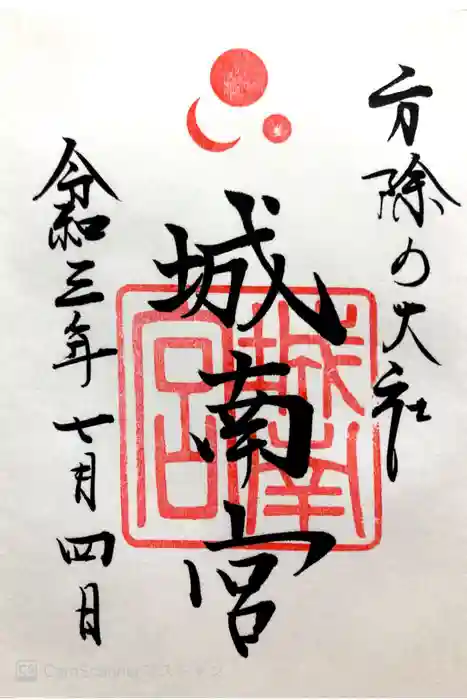 方除の大社
城南宮
令和三年七月四日
城南宮
CS CamScannerでスキャン